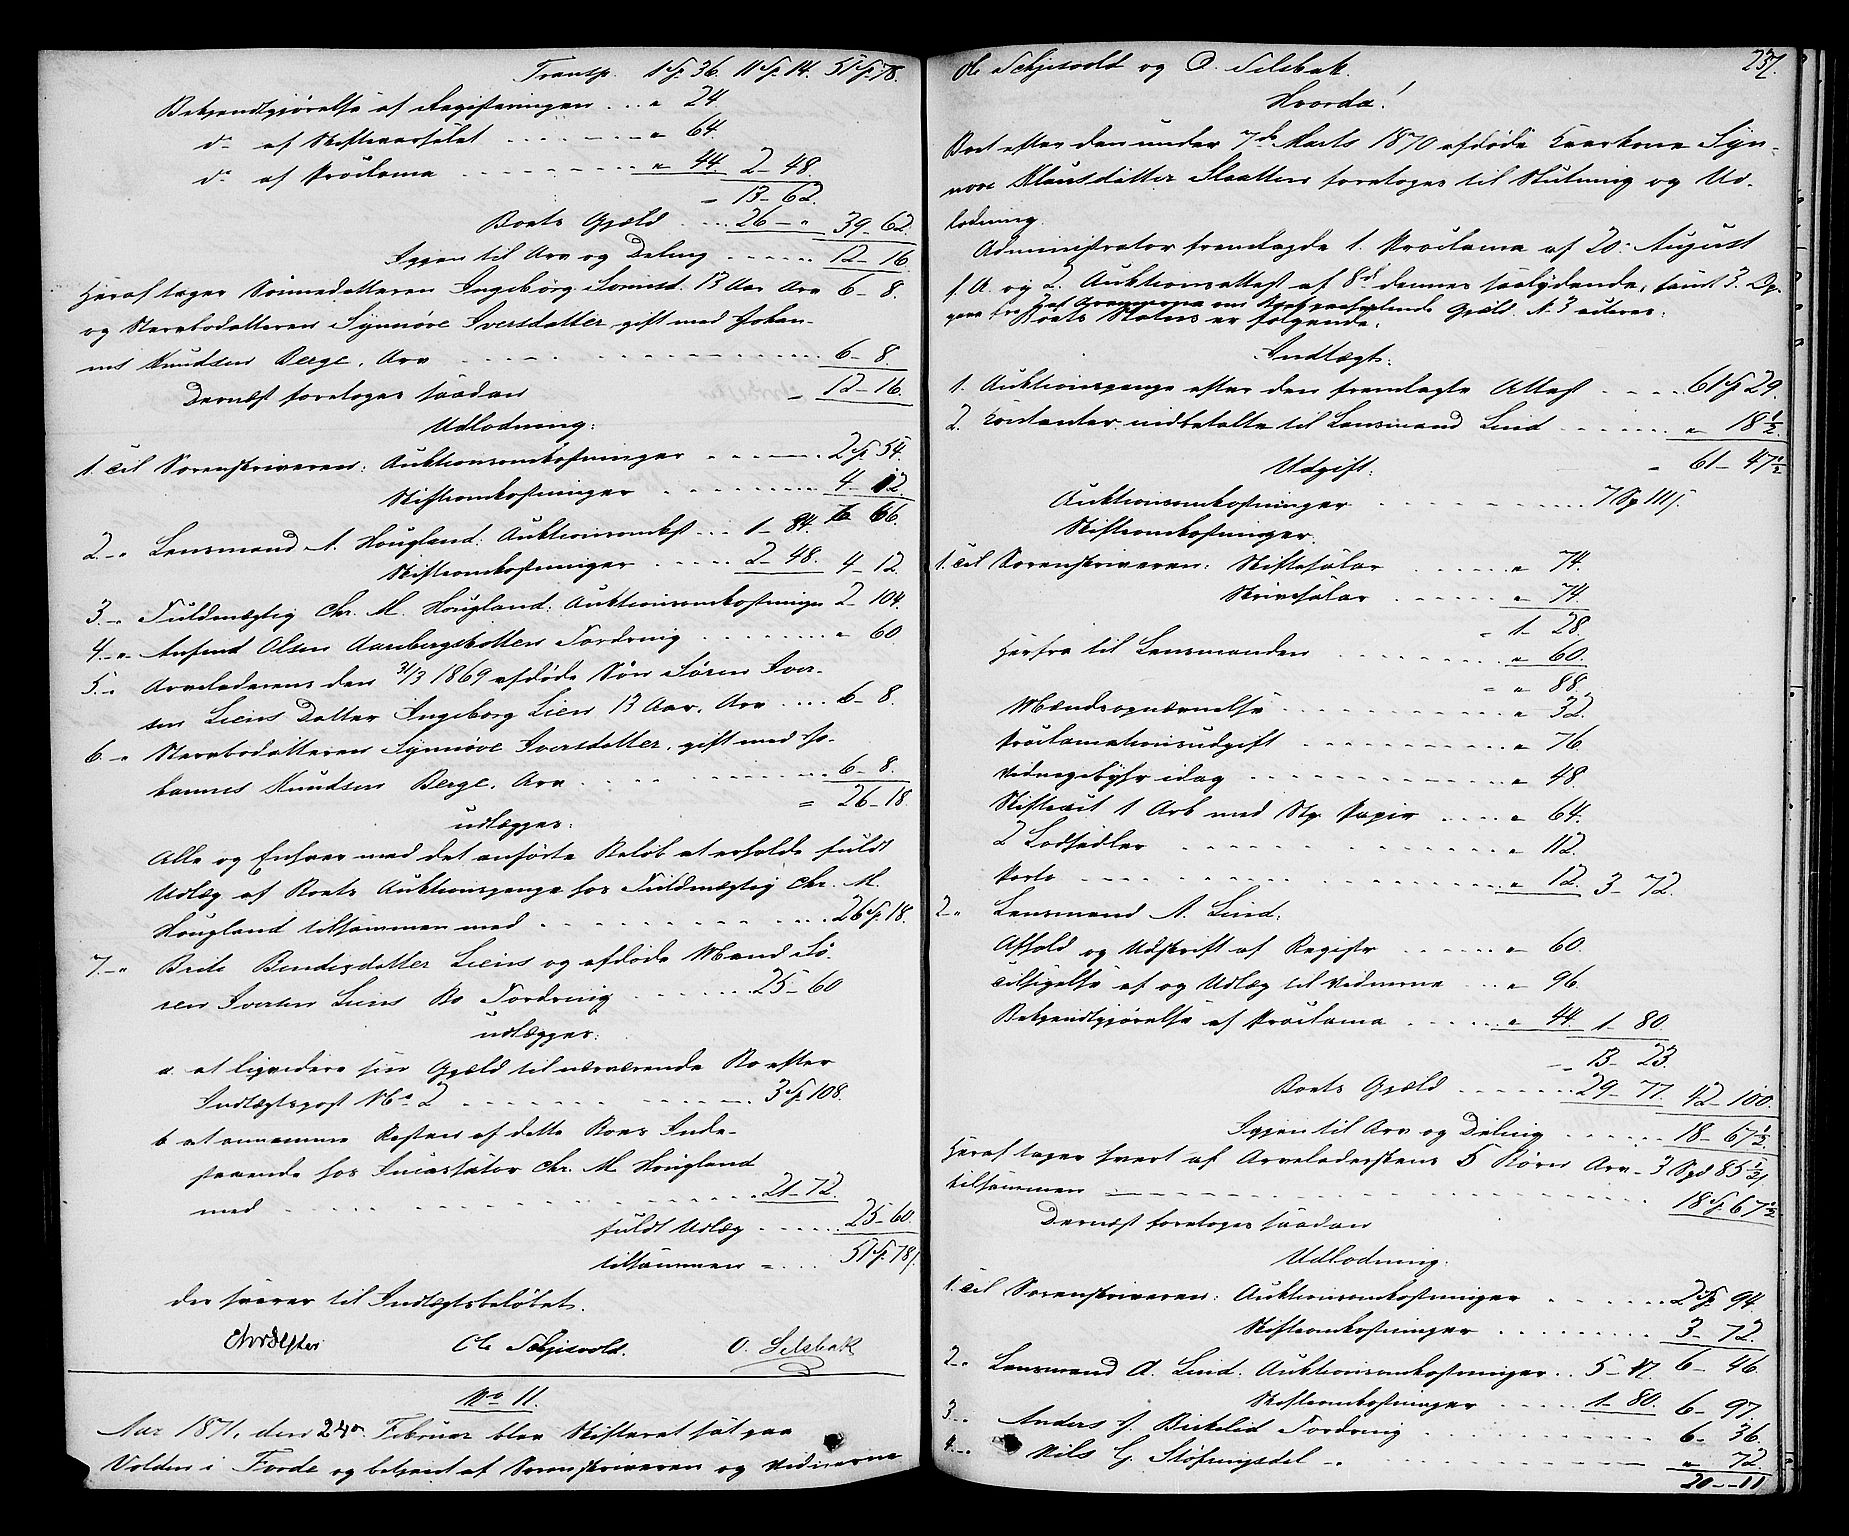 Transp. 1 Sp. 36. 11 Sp. 14. 51 Sp. 78.
Bekjendtgjørelse af Registeringen . . . „ 24.
do af Skiftesamlet . . . . „ 64.
do af Proclama . . . . „ 44. 2 – 48.
= 13 – 62.
Boets Gjæld . . . . 26 – „ 39 – 62.
Igjen til Arv og Deling . . . . 12 – 16.
Heraf tager Sønnedatteren Ingeborg Sørensd. 13 Aar Arv 6 – 8.
og Stervbodatteren Synnøve Iversdatter, gift med Johan-
nes Knudsen Berge, Arv . . . . 6 – 8.
Dernæst foretoges saadan = 12 – 16.
Udlodning:
1. Til Sorenskriveren: Auktionsomkostninger . . . . 2 Sp. 54.
Skifteomkostninger . . . . 4 – 12.
6 66.
2 – „ Lensmand N. Hougland: Auktionsomkst . . . 1 – 84.
Skifteomkostninger . . . . 2 – 48. 4 – 12.
3. – „ Fuldmægtig Chr. M. Hougland: Auktionsomkostninger 2 – 104.
4. – „ Anfind Olsen Aarbergsbotten Fordring . . . . „ 60
5. – „ Arveladerens den 31/3 1869 afdøde Søn Søren Iver-
sen Liens Datter Ingeborg Lien 13 Aar, Arv . . . . 6 – 8.
6. – „ Stervbodatteren Synnøve Iversdatter, gift med Jo-
hannes Knudsen Berge, Arv . . . . 6 – 8.
= 26 – 18
udlægges:
Alle og Enhver med det anførte Beløb at erholde fuldt
Udlæg af Boets Auktionspenge hos Fuldmægtig Chr. M.
Hougland tilsammen med . . . . 26 Sp. 18.
7. – „ Brite Bendixdatter Liens og afdøde Mand Sø-
ren Iversen Liens Bo Fordring . . . . 25 – 60
udlægges:
a. at liqvidere sin Gjæld til nærværende Bo efter
Indtægtspost No 2 . . . . 3 Sp. 108.
b at annamme Resten af dette Boes Inde-
staaende hos Incassator Chr. M. Hougland
med . . . . 21 – 72.
fuldt Udlæg . . . . 25 – 60.
tilsammen = . . . 51 Sp. 78 s.
der svarer til Indtægtsbeløbet.
Ole Schjervold. O. Selsbak
No 11.
Aar 1871, den 24de Februar blev Skifteret sat paa
Volden i Førde og betjent af Sorenskriveren og Vidnerne
237.
Ole Schjervold og O. Selsbak.
Hvorda!
Boet efter den under 7de Marts 1870 afdøde Kaarkone Syn-
nøve Klausdatter Slaatten foretoges til Slutning og Ud-
lodning.
Administrator fremlagde 1. Proclama af 20. August
f. A. og 2. Auktionsattest af 8de dennes saalydende, samt 3. Op-
gave fra Arvingerne om Boet paahvilende Gjæld. N. 3 citeres:
Boets Status er følgende:
Indtægt:
1. Auktionspenge efter den fremlagte Attest . . . . 61 Sp 29.
2. Kontanter indbetalte til Lensmand Lind . . . . „ 18 1/2.
„ 61 – 47 1/2
Udgift:
Auktionsomkostninger . . . . 7 Sp 111 s.
Skifteomkostninger.
1. Til Sorenskriveren: Skiftesalær . . . . „ 74.
Skrivesalær . . . . „ 74.
= 1 – 28.
Herfra til Lensmanden . . . . „ 60.
= „ 88.
Mændsopnævnelse . . . . „ 32.
Proclamationsudgift . . . . „ 76.
Vidnegebyhr idag . . . . „ 48.
Skifteact 1 Ark med Stp. Papir . . . . „ 64.
2 Lodsedler . . . . „ 112.
Porto . . . . „ 12. 3 – 72.
2 – „ Lensmand A. Lind:
Afhold og Udskrift af Registr . . . . „ 60.
Tilsigelse af og Udlæg til Vidnerne . . . „ 96.
Bekjendtgjørelse af Proclama . . . . „ 44. 1 – 80.
= 13 – 23.
Boets Gjæld . . . . 29 – 77. 42 – 100.
Igjen til Arv og Deling . . . . 18 – 67 1/2.
Heraf tager hvert af Arveladerskens 5 Børn Arv – 3 Spd 85 1/2 s
tilsammen . . . . 18 Sp. 67 1/2
Dernæst foretoges saadan
Udlodning:
1. Til Sorenskriveren: Auktionsomkostninger . . . . 2 Sp. 94.
Skifteomkostninger . . . . 3 – 72.
2 – „ Lensmand A. Lind. Auktionsomkostninger . . 5 – 17. 6 – 46.
Skifteomkostninger . . . . 1 – 80. 6 – 97.
3 – „ Anders J. Birkelid Fordring . . . . 6 – 36.
4 – „ Nils G. Støfringsdal – „ . . . . „ 72.
20 – 11